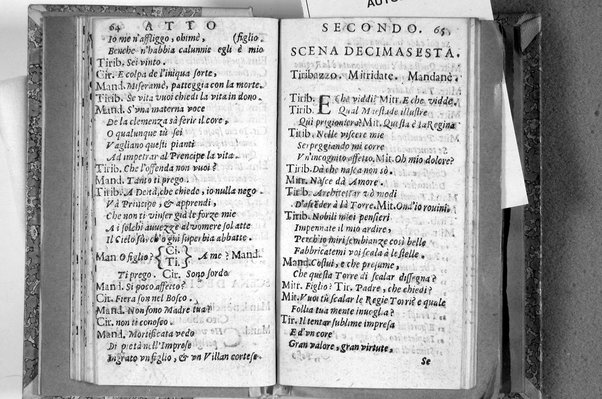 AUTO
64 ATTO
Io me n'affliggo, ohimè, (figlio
Benche n'habbia calunnie egli è mio
Tirib. Sei vinto.
Cir. E colpa de l'iniqua sorte,
Mand. Miseramè, patteggia con la morte.
Tirib. Se vita vuoi chiedi la vita in dono.
Mand. S'vna materna voce
De la clemenza sà ferir il core,
O qualunque tù sei
Vagliano questi pianti
Ad impetrar al Prencipe la vita.
Tirib. Che l'offenda non vuoi?
Mand. Tanto ti prego.
Tirib. A Deità, che chiede, io nulla nego
Và ò Principe, & apprendi,
Che non ti vinser già le forze mie
A i solchi auuezze al vomere sol atte
Il Cielo sù ch'ogni superbia abbatte.
Man. O figlio? { Ci. Ti. } A me? Mand.
Ti prego. Cir. Sono sordo
Mand. Sì poco affetto?
Cir. Fiera son nel Bosco.
Mand. Non sono Madre tua?
Cir. non ti conosco.
Mand. Mortificata vedo
Di pietà nell'Imprese
Ingrato vn figlio, & vn Villan cortese.
SECONDO. 65
SCENA DECIMASESTA.
Tiribazzo. Mitridate. Mandane.
Tirib. E Che viddi? Mit. E che vidde.
Tirib. Qual Maestade illustre
Quì prigioniera? Mit. Questa è la Regina
Tirib. Nelle viscere mie
Serpeggiando mi corre
Vn'incognito affetto. Mit. Oh mio dolore?
Tirib. Dà che nasca non sò.
Mit. Nasce dà Amore.
Tirib. Architettar vò modi
D'ascender à la Torre. Mit. Ond'io rouini
Tirib. Nobili miei pensieri
Impennate il mio ardire,
Perch'io miri sembianze così belle
Fabbricatemi voi scala à le stelle.
Mand. Costui, e che presume,
Che questa Torre di scalar dissegna?
Mit. Figlio? Tir. Padre, che chiedi?
Mit. Vuoi tù scalar le Regie Torri? e quale
Follia tua mente inueglia?
Tir. Il tentar sublime impresa
E d'vn core
Gran valore, gran virtute,
Se